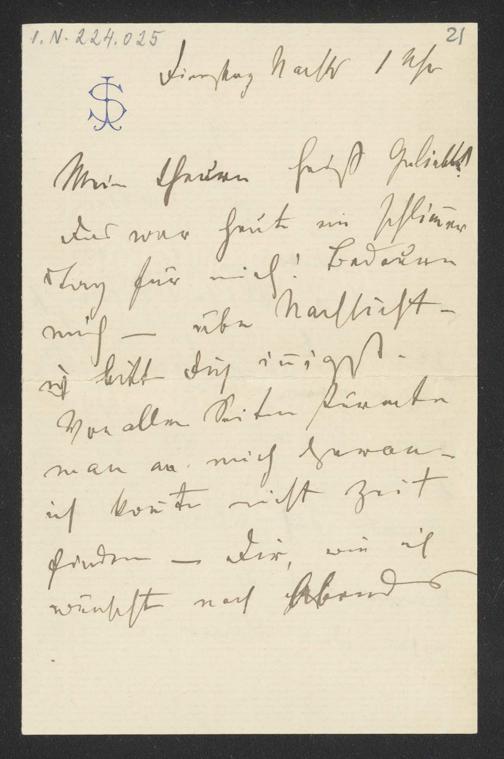 I.N. 224.025
21
JS
Dienstag Nachts 1 Uhr
Mein theuren heiß Geliebte!
Das war heute ein schlimer
Tag für mich! Bedaure
mich — übe Nachsicht —
ich bitte dich inigst.
Von allen Seiten stürmte
man an mich heran —
ich konte nicht Zeit
finden — Dir, wie ich
wünscht noch Abends